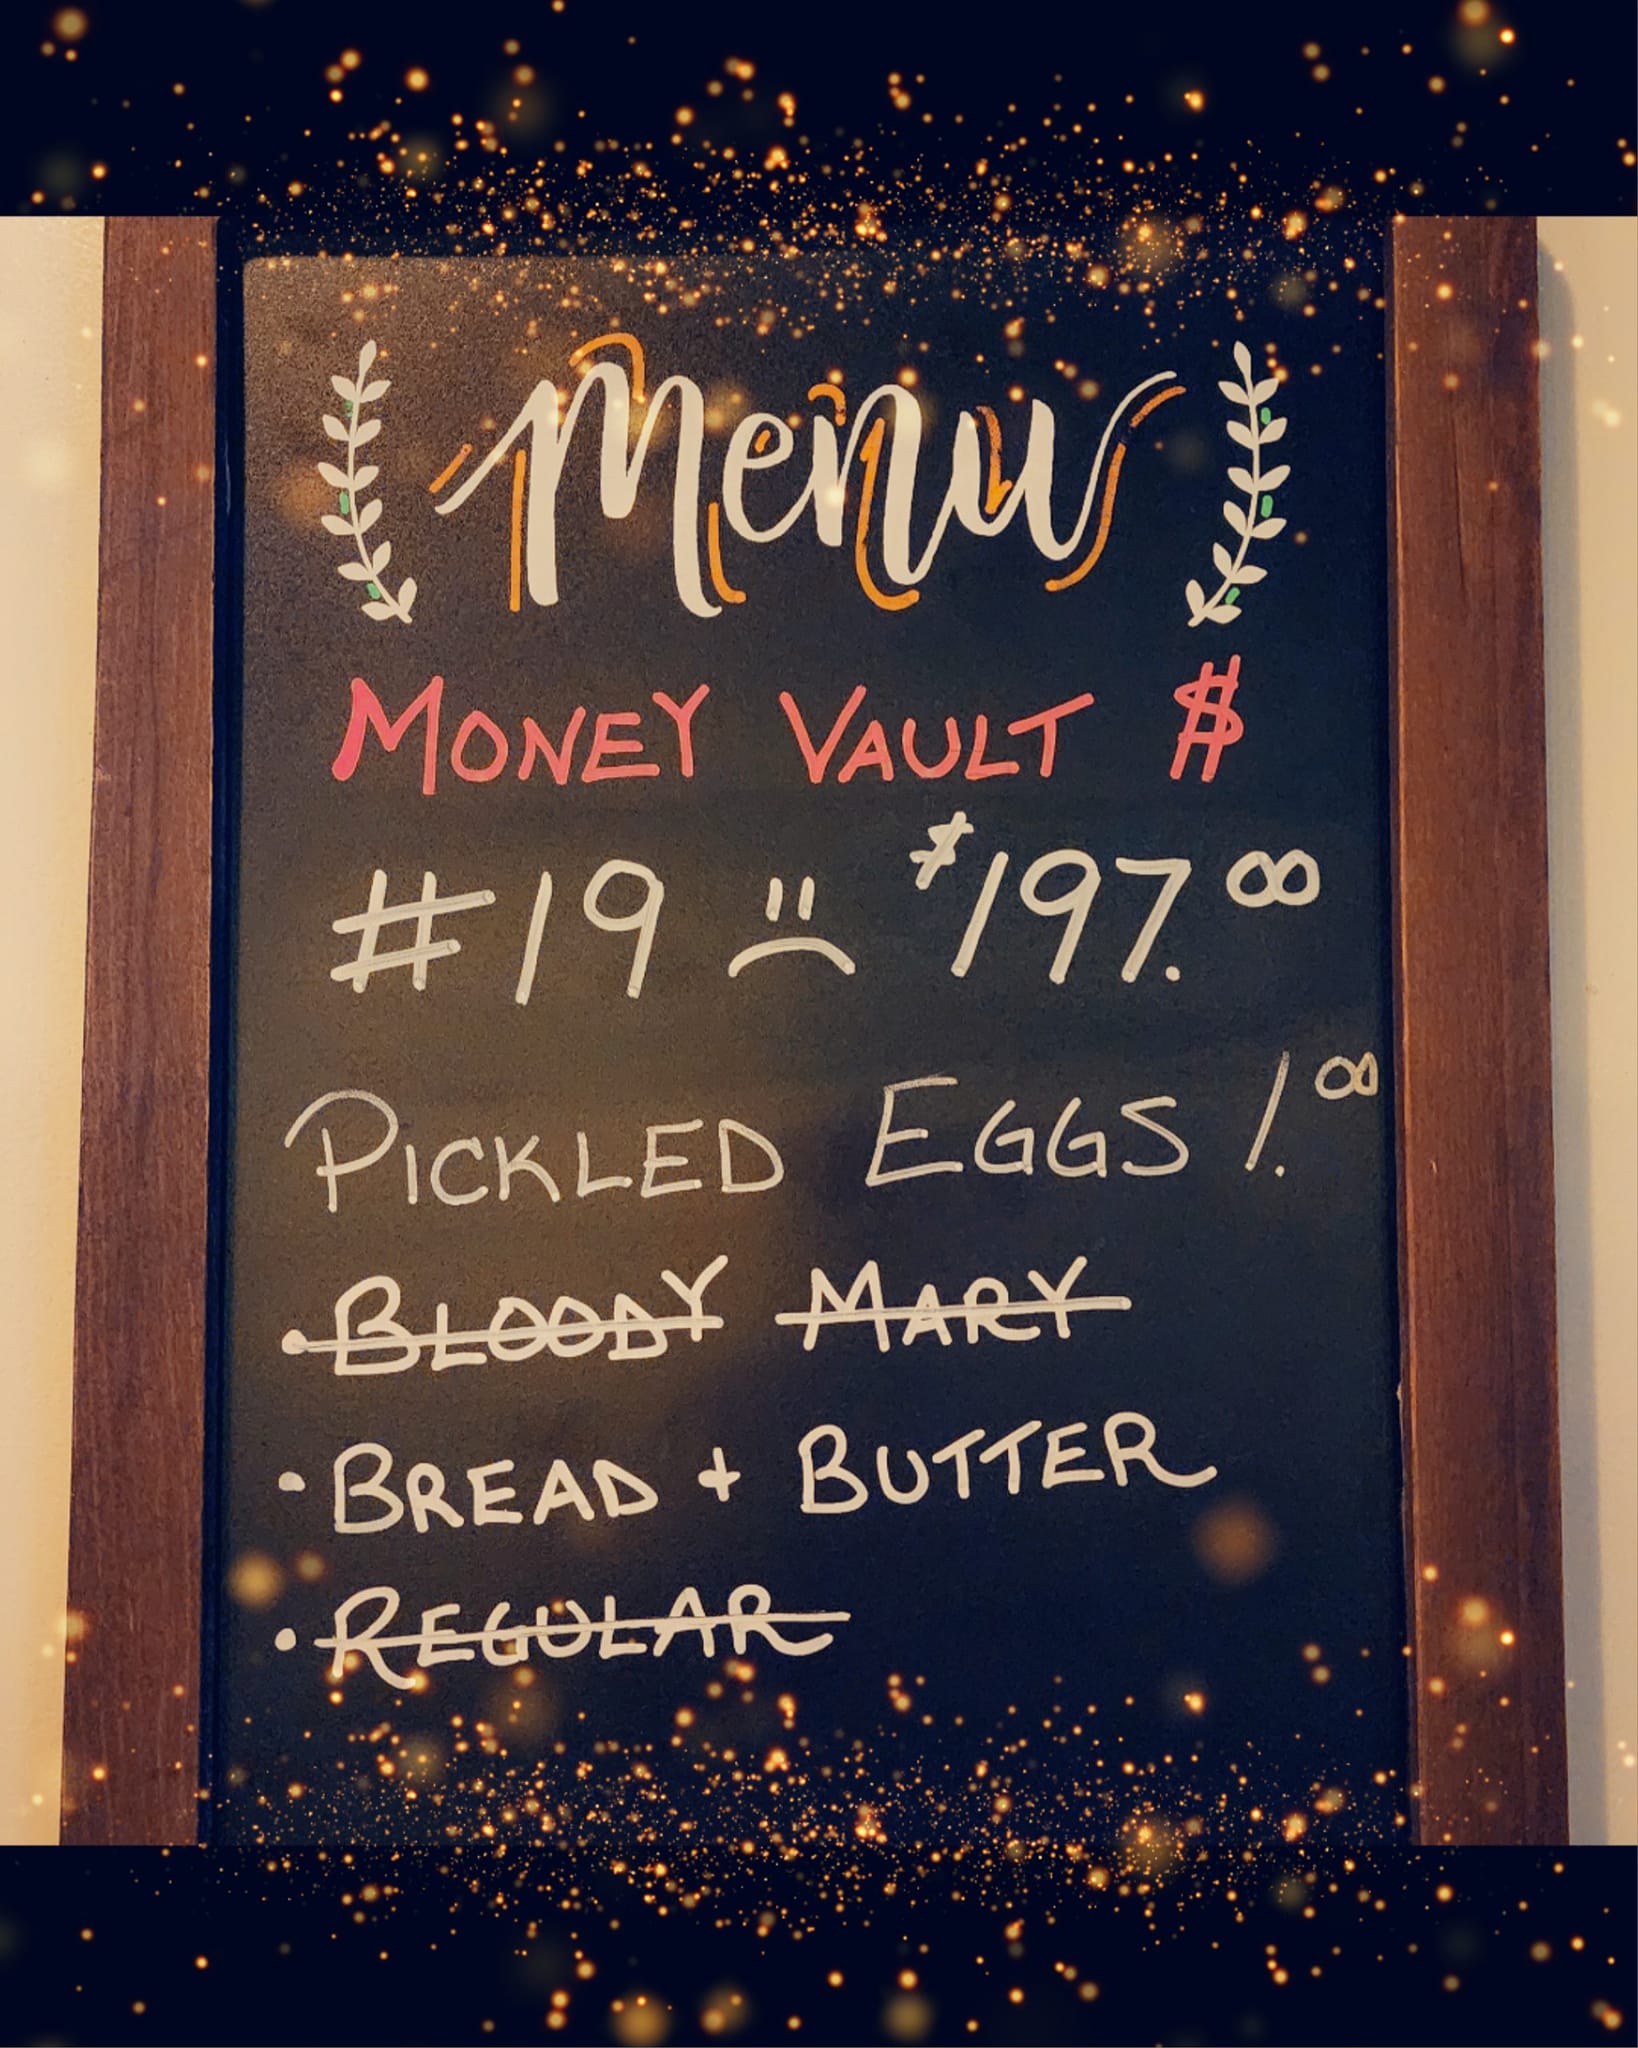 Menu
MONEY VAULT $
#19 $197.00
PICKLED EGGS 1.00
• BLOODY MARY
• BREAD + BUTTER
• REGULAR